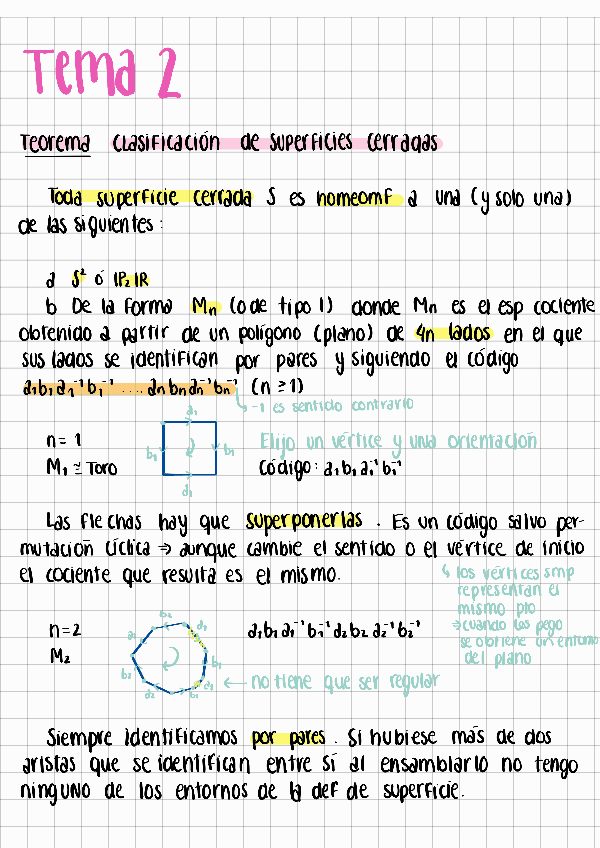 Tema 2
Teorema Clasificación de superficies cerradas
Toda superficie cerrada S es homeomf a una (y solo una)
de las siguientes:
a S² ó P₂ℝ
b De la forma Mn (o de tipo 1) donde Mn es el esp cociente
obtenido a partir de un polígono (plano) de 4n lados en el que
sus lados se identifican por pares y siguiendo el código
a₁b₁a₁⁻¹b₁⁻¹ .... anbnan⁻¹bn⁻¹ (n ≥ 1)
-1 es sentido contrario
a₁
n = 1
b₁
b₁
Elijo un vértice y una orientación
M₁ ≅ Toro
Código: a₁b₁a₁⁻¹b₁⁻¹
a₁
Las flechas hay que superponerlas. Es un código salvo per-
mutación cíclica ⇒ aunque cambie el sentido o el vértice de inicio
el cociente que resulta es el mismo.
↳ los vértices smp
representan el
mismo pto
⇒ cuando los pego
se obtiene un entorno
del plano
n = 2
b₂
a₁
a₁b₁a₁⁻¹b₁⁻¹a₂b₂a₂⁻¹b₂⁻¹
M₂
a₂
b₁
b₂
a₂
b₁
a₁
← no tiene que ser regular
Siempre identificamos por pares. Si hubiese más de dos
aristas que se identifican entre sí al ensamblarlo no tengo
ninguno de los entornos de la def de superficie.